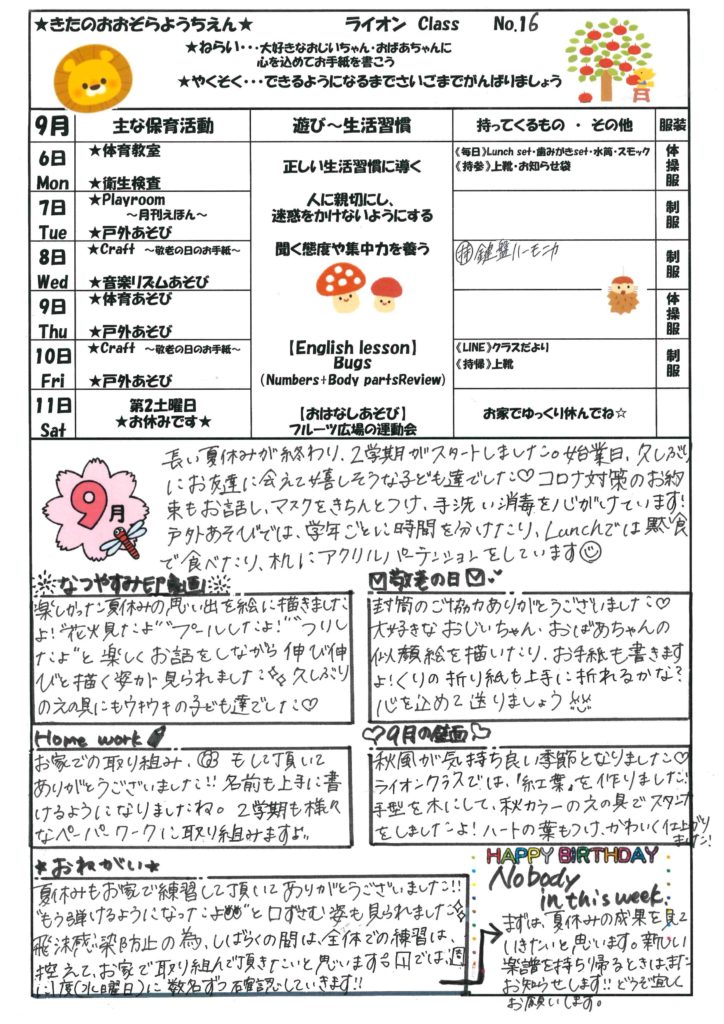 ★きたのおおぞらようちえん★　ライオン Class　No.16
★ねらい・・・大好きなおじいちゃん・おばあちゃんに
心を込めてお手紙を書こう
★やくそく・・・できるようになるまでさいごまでがんばりましょう
9月　主な保育活動　遊び～生活習慣　持ってくるもの ・ その他　服装
6日 Mon
★体育教室
★衛生検査
7日 Tue
★Playroom
～月刊えほん～
★戸外あそび
8日 Wed
★Craft ～敬老の日のお手紙～
★音楽リズムあそび
9日 Thu
★体育あそび
★戸外あそび
10日 Fri
★Craft ～敬老の日のお手紙～
★戸外あそび
11日 Sat
第2土曜日
★お休みです★
正しい生活習慣に導く
人に親切にし、
迷惑をかけないようにする
聞く態度や集中力を養う
【English lesson】
Bugs
(Numbers+Body partsReview)
【おはなしあそび】
フルーツ広場の運動会
《毎日》Lunch set・歯みがきset・水筒・スモック
《持参》上靴・お知らせ袋
持 鍵盤ハーモニカ
《LINE》クラスだより
《持帰》上靴
お家でゆっくり休んでね☆
体操服
制服
制服
体操服
制服
9月
長い夏休みが終わり、2学期がスタートしました。始業日、久しぶり
にお友達に会えて嬉しそうな子ども達でした♡ コロナ対策のお約
束もお話し、マスクをきちんとつけ、手洗い消毒を心がけています!
戸外あそびでは、学年ごとに時間を分けたり、Lunchでは黙食
で食べたり、机にアクリルパーテンションをしています☺
なつやすみ印象画
楽しかった夏休みの思い出を絵に描きました
よ!"花火見たよ""プールしたよ!""つりし
たよ"と楽しくお話をしながら伸び伸
びと描く姿が見られました 久しぶり
のえの具にもウキウキの子ども達でした♡
敬老の日
封筒のご協力ありがとうございました♡
大好きなおじいちゃん・おばあちゃんの
似顔絵を描いたり、お手紙も書きます
よ!くりの折り紙も上手に折れるかな?
心を込めて送りましょう
Home work
お家での取り組み、 もして頂いて
ありがとうございました!! 名前も上手に書
けるようになりましたね。2学期も様々
なペーパーワークに取り組みますよ
♡9月の壁面♡
秋風が気持ち良い季節となりました♡
ライオンクラスでは、『紅葉』を作りました!
手型を木にして、秋カラーのえの具でスタンプ
をしましたよ!ハートの葉もつけ、かわいく仕上がり
ました!
★おねがい★
夏休みもお家で練習して頂いてありがとうございました!!
"もう弾けるようになったよ"と口ずさむ姿も見られました
飛沫感染防止の為、しばらくの間は、全体での練習は、
控えて、お家で取り組んで頂きたいと思います。園では、週
に1度(水曜日)に数名ずつ確認していきます!!
HAPPY BIRTHDAY
Nobody
in this week.
まずは、夏休みの成果を見て
いきたいと思います。新しい
楽譜を持ち帰るときは、また
お知らせします!! どうぞ宜しく
お願いします。